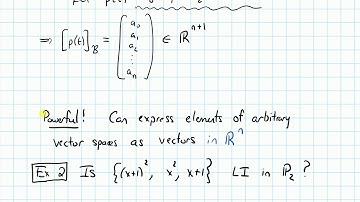 ⇒ [p(t)]_B = (a₀ a₁ a₂ ⋮ aₙ) ∈ ℝⁿ⁺¹
Powerful! Can express elements of arbitrary
vector spaces as vectors in ℝⁿ
Ex 2 Is {(x+1)², x², x+1} LI in ℙ₂ ?